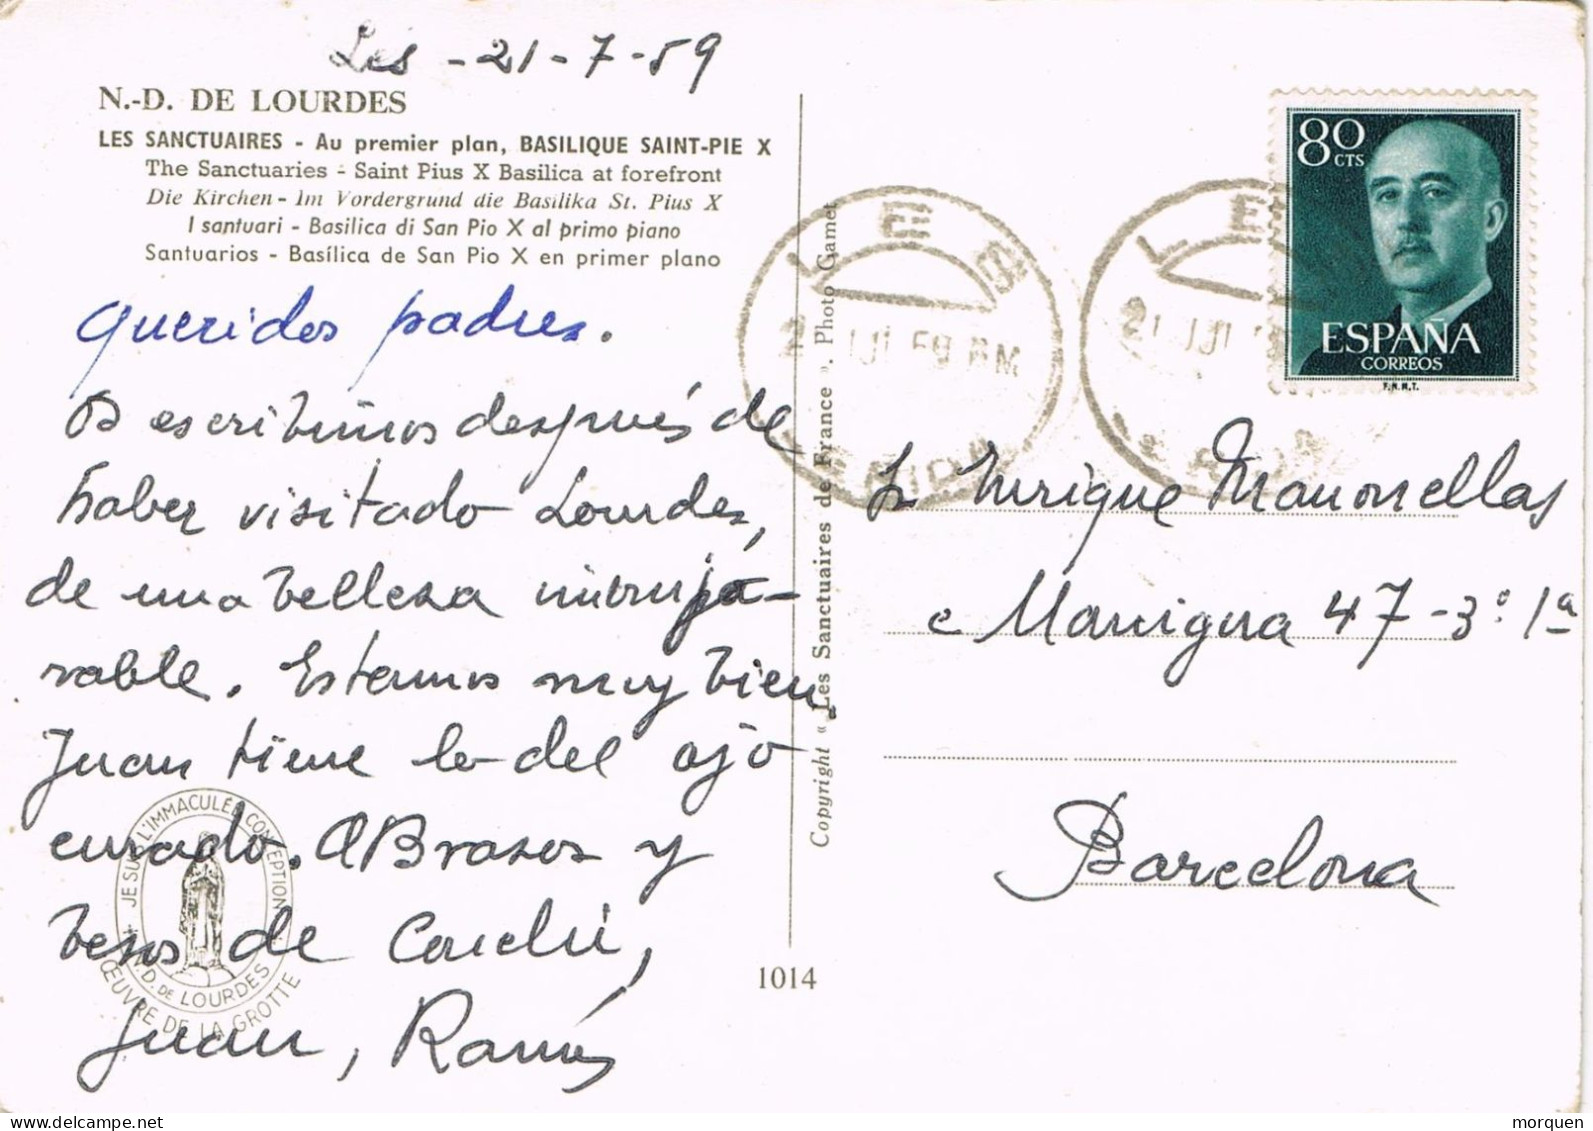 Les - 21 - 7 - 59
N.-D. DE LOURDES
LES SANCTUAIRES - Au premier plan, BASILIQUE SAINT-PIE X
The Sanctuaries - Saint Pius X Basilica at forefront
Die Kirchen - Im Vordergrund die Basilika St. Pius X
I santuari - Basilica di San Pio X al primo piano
Santuarios - Basílica de San Pio X en primer plano
Queridos padres.
Os escribimos después de
haber visitado Lourdes,
de una belleza
rable. Estamos muy bien.
Juan tiene lo del ojo
curado. Abrasos y
besos de Conchi,
Juan, Ramón
JE SUIS L'IMMACULÉE CONCEPTION
N.D. DE LOURDES
ŒUVRE DE LA GROTTE
Copyright « Les Sanctuaires de France ». Photo Gamet
1014
LES
21 JUL 59 M
LERIDA
LES
21 JUL
80 CTS
ESPAÑA
CORREOS
F.N.M.T.
Sr Enrique Manonellas
c Manigua 47 - 3º 1ª
Barcelona
morquen